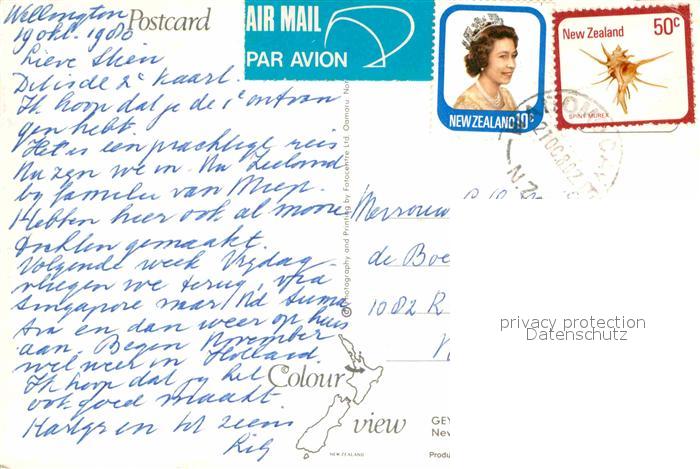 Wellington
19 okt. 1980
Postcard
AIR MAIL
PAR AVION
NEW ZEALAND 10c
New Zealand 50c
SPINY MUREX
Lieve Stien
Dit is de 2e kaart.
Ik hoop dat je de 1e ontvan
gen hebt.
Het is een prachtige reis
Nu zyn we in Nw Zeeland
by familie van Miep.
Hebben hier ook al mooie
tochten gemaakt.
Volgende week Vrydag
vliegen we terug, via
Singapore naar Nd Suma
tra en dan weer op huis
aan. Begin November
wel weer in Holland
Ik hoop dat jy het
ook goed maakt
Hartgr en tot ziens
Photography and Printing by Fotocentre Ltd. Oamaru.
Mevrouw
de Boe
1082 R
privacy protection
Datenschutz
Colour
view
NEW ZEALAND
GEY
New
Produ